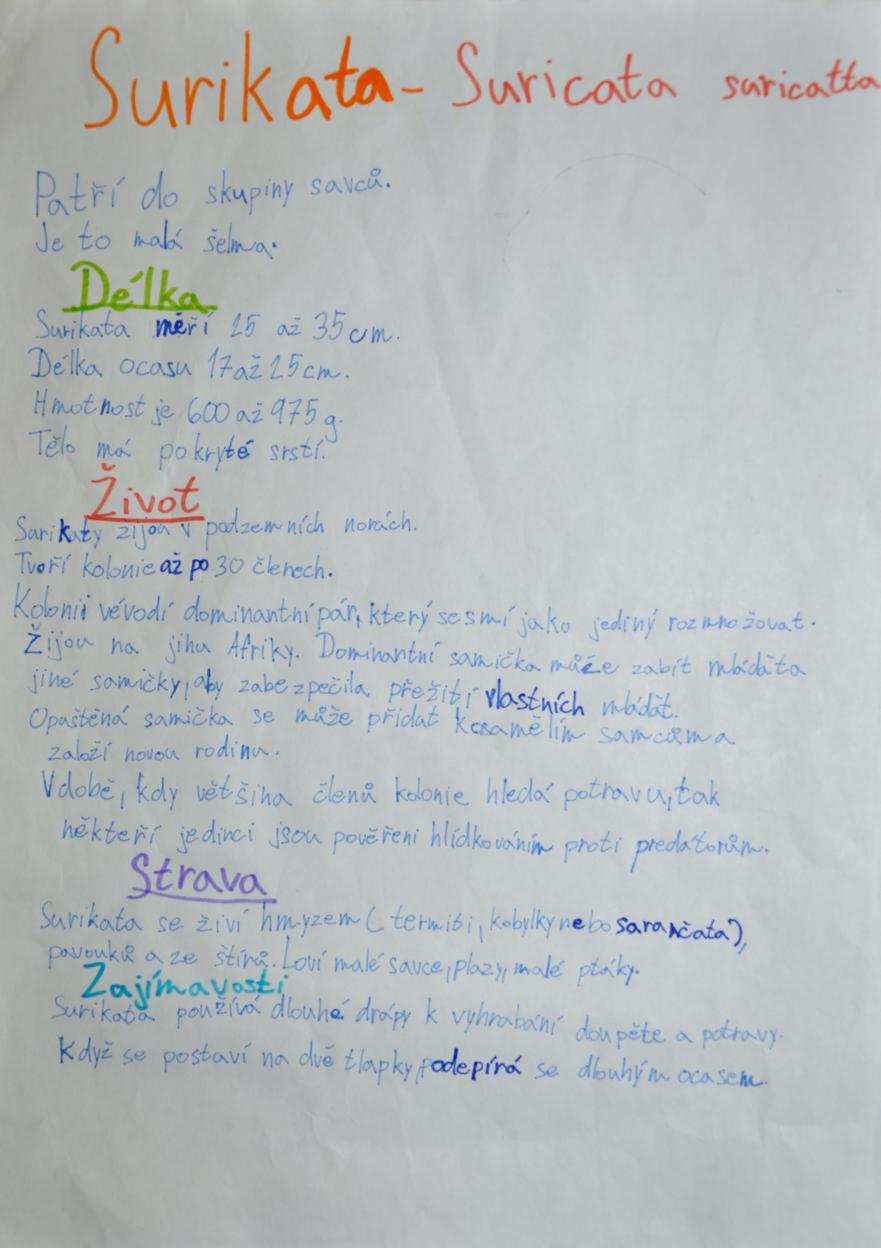 Surikata - Suricata suricatta
Patří do skupiny savců.
Je to malá šelma.
Délka
Surikata měří 25 až 35 cm.
Délka ocasu 17 až 25 cm.
Hmotnost je 600 až 975 g.
Tělo má pokryté srstí.
Život
Surikaty žijou v podzemních norách.
Tvoří kolonie až po 30 členech.
Kolonii vévodí dominantní pár, který se smí jako jediný rozmnožovat.
Žijou na jihu Afriky. Dominantní samička může zabít mláďata
jiné samičky, aby zabezpečila přežití vlastních mláďat.
Opuštěná samička se může přidat k osamělím samcům a
založí novou rodinu.
V době, kdy většina členů kolonie hledá potravu, tak
někteří jedinci jsou pověřeni hlídkováním proti predátorům.
Strava
Surikata se živí hmyzem (termiti, kobylky nebo sarančata),
pavouků a ze štírů. Loví malé savce, plazy, malé ptáky.
Zajímavosti
Surikata používá dlouhé drápy k vyhrabání doupěte a potravy.
Když se postaví na dvě tlapky, podepírá se dlouhým ocasem.